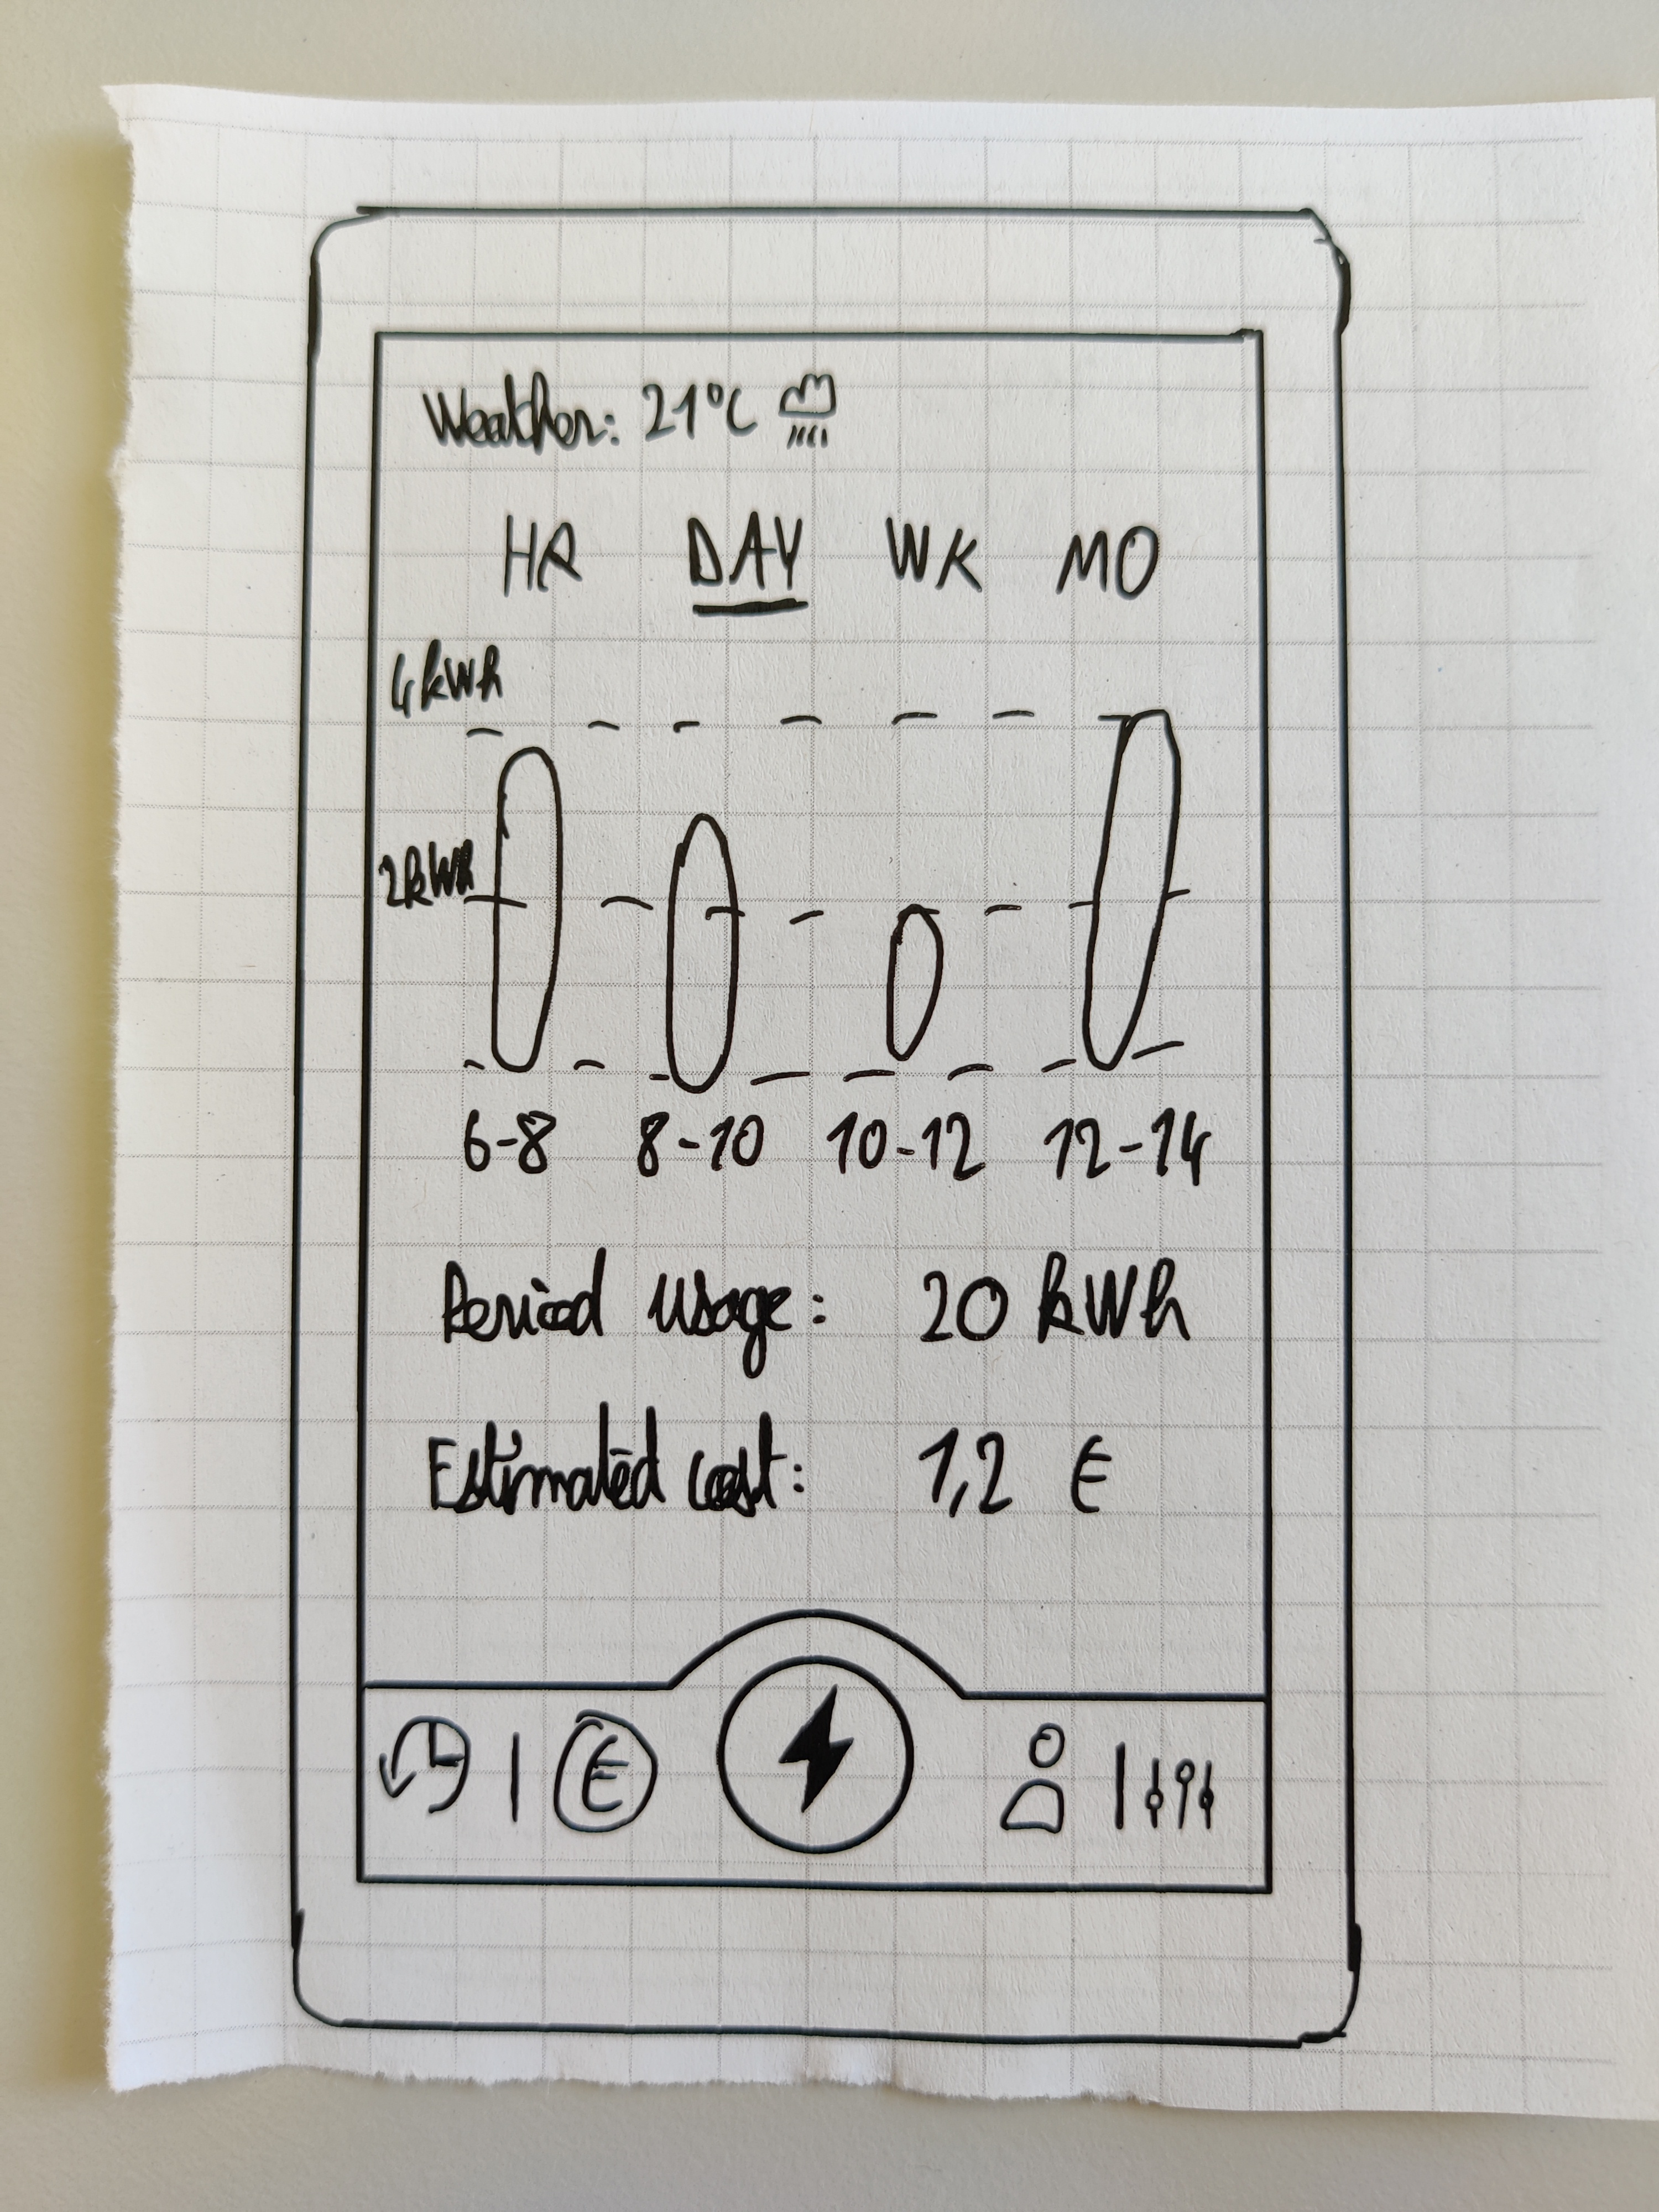 Weather: 21°C
HR DAY WK MO
4kWh
2kWh
6-8 8-10 10-12 12-14
Period Usage: 20 kWh
Estimated cost: 1,2 €
€